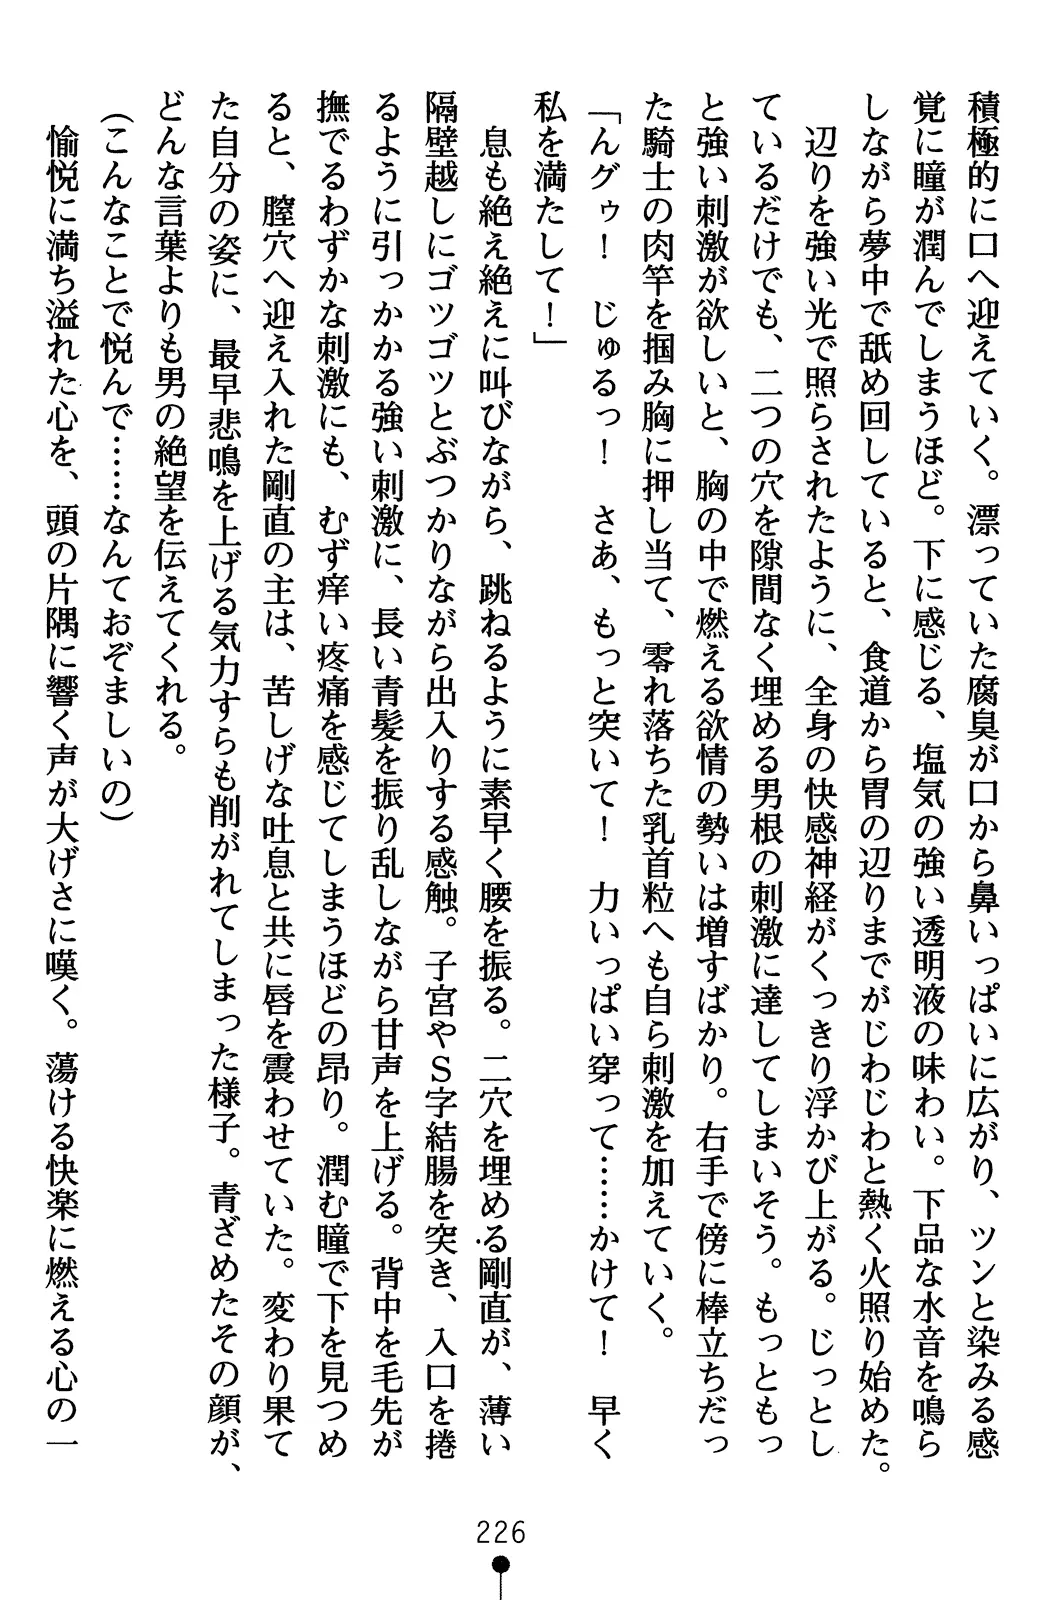 積極的に口へ迎えていく。漂っていた腐臭が口から鼻いっぱいに広がり、ツンと染みる感
覚に瞳が潤んでしまうほど。下に感じる、塩気の強い透明液の味わい。下品な水音を鳴ら
しながら夢中で舐め回していると、食道から胃の辺りまでがじわじわと熱く火照り始めた。
辺りを強い光で照らされたように、全身の快感神経がくっきり浮かび上がる。じっとし
ているだけでも、二つの穴を隙間なく埋める男根の刺激に達してしまいそう。もっともっ
と強い刺激が欲しいと、胸の中で燃える欲情の勢いは増すばかり。右手で傍に棒立ちだっ
た騎士の肉竿を掴み胸に押し当て、零れ落ちた乳首粒へも自ら刺激を加えていく。
「んグゥ！　じゅるっ！　さあ、もっと突いて！　力いっぱい穿って……かけて！　早く
私を満たして！」
息も絶え絶えに叫びながら、跳ねるように素早く腰を振る。二穴を埋める剛直が、薄い
隔壁越しにゴツゴツとぶつかりながら出入りする感触。子宮やＳ字結腸を突き、入口を捲
るように引っかかる強い刺激に、長い青髪を振り乱しながら甘声を上げる。背中を毛先が
撫でるわずかな刺激にも、むず痒い疼痛を感じてしまうほどの昂り。潤む瞳で下を見つめ
ると、膣穴へ迎え入れた剛直の主は、苦しげな吐息と共に唇を震わせていた。変わり果て
た自分の姿に、最早悲鳴を上げる気力すらも削がれてしまった様子。青ざめたその顔が、
どんな言葉よりも男の絶望を伝えてくれる。
(こんなことで悦んで……なんておぞましいの)
愉悦に満ち溢れた心を、頭の片隅に響く声が大げさに嘆く。蕩ける快楽に燃える心の一
226